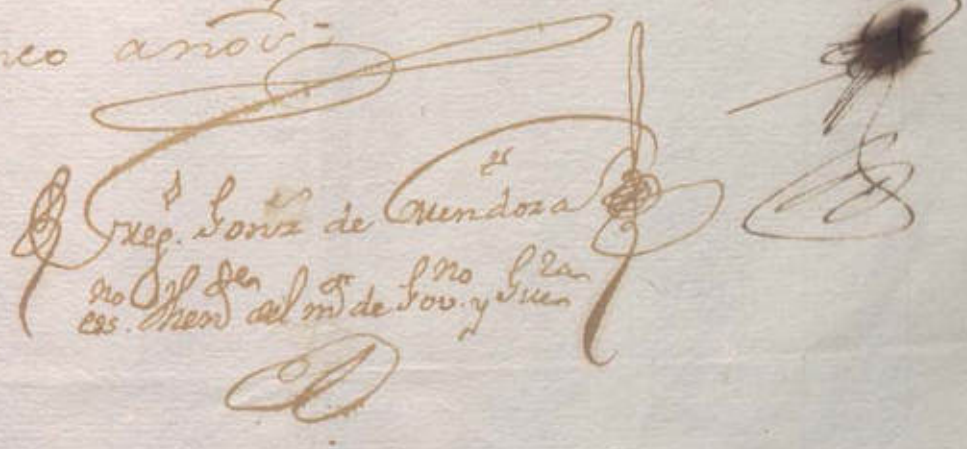 nco años
Greg.º Gonz de Mendoza
ess.no Then.te del m.or de Gov.no y Gue.rra